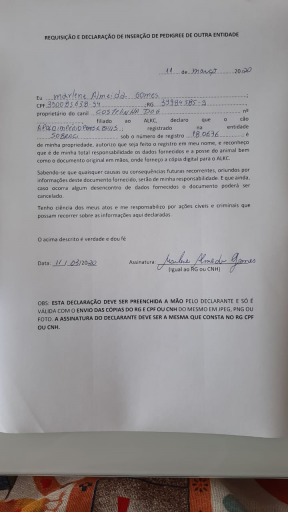 REQUISIÇÃO E DECLARAÇÃO DE INSERÇÃO DE PEDIGREE DE OUTRA ENTIDADE
11 de março 2020
Eu Marlene Almeida Gomes
CPF RG
proprietário do canil nº
filiado ao ALKC, declaro que o cão
registrado na entidade
SOBRACI sob o número de registro é
de minha propriedade, autorizo que seja feito o registro em meu nome, e reconheço
que é de minha total responsabilidade os dados fornecidos e a posse do animal bem
como o documento original em mãos, onde forneço a cópia digital para o ALKC.
Sabendo-se que quaisquer causas ou consequências futuras recorrentes, oriundos por
informações deste documento fornecido, serão de minha responsabilidade. E que ainda,
caso ocorra algum desencontro de dados fornecidos o documento poderá ser
cancelado.
Tenho ciência dos meus atos e me responsabilizo por ações cíveis e criminais que
possam recorrer sobre as informações aqui declaradas.
O acima descrito é verdade e dou fé
Data: 11/03/2020 Assinatura: Marlene Almeida Gomes
(Igual ao RG ou CNH)
OBS: ESTA DECLARAÇÃO DEVE SER PREENCHIDA A MÃO PELO DECLARANTE E SÓ É
VÁLIDA COM O ENVIO DAS CÓPIAS DO RG E CPF OU CNH DO MESMO EM JPEG, PNG OU
FOTO. A ASSINATURA DO DECLARANTE DEVE SER A MESMA QUE CONSTA NO RG CPF
OU CNH.